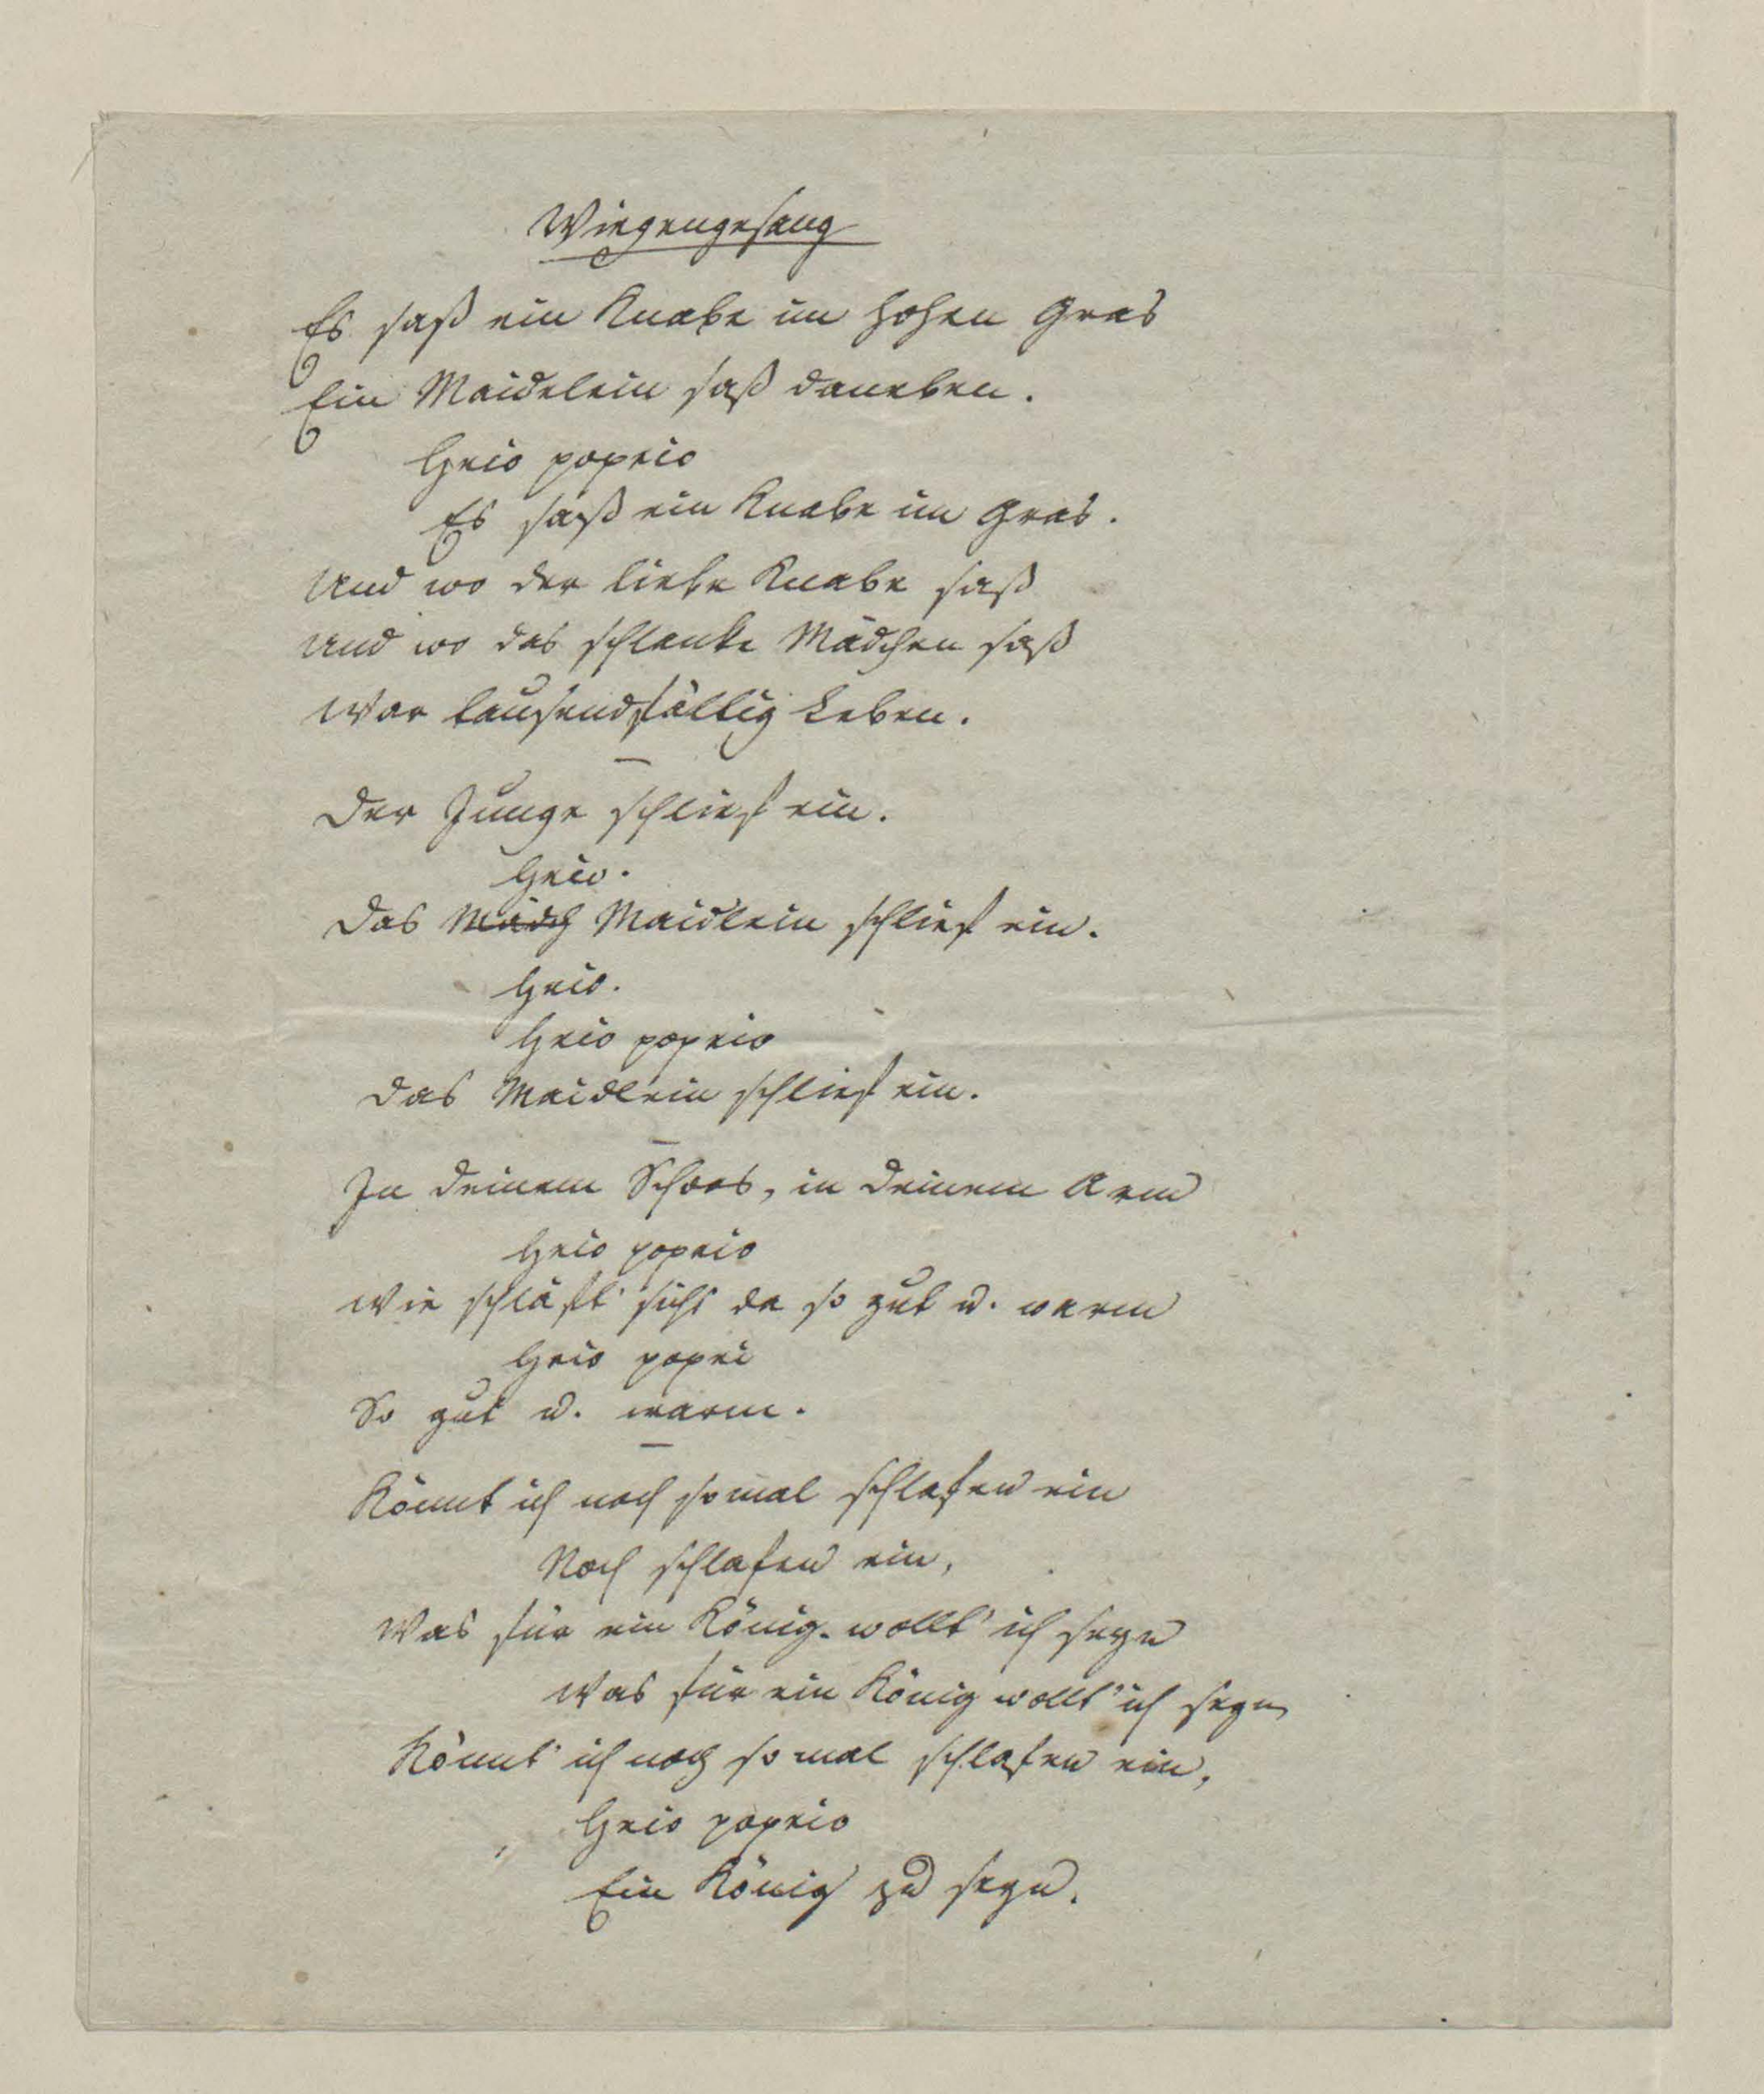 Wiegengesang
Es saß ein Knabe im hohen Gras
Ein Maidelein saß daneben.
Heio popeio
Es saß ein Knabe im Gras.
Und wo der liebe Knabe saß
Und wo das schlanke Mädchen saß
War tausendfältig Leben.
Der Junge schlief ein.
Heio.
Das Mädch Maidlein schlief ein.
Heio.
Heio popeio
Das Maidlein schlief ein.
In deinem Schoos, in deinem Arm
Heio popeio
Wie schläft sichs da so gut u. warm
Heio popei
So gut u. warm.
Könnt ich noch so mal schlafen ein
Noch schlafen ein,
Was für ein König wollt' ich seyn
Was für ein König wollt' ich seyn
Könnt' ich noch so mal schlafen ein,
Heio popeio
Ein König zu seyn.